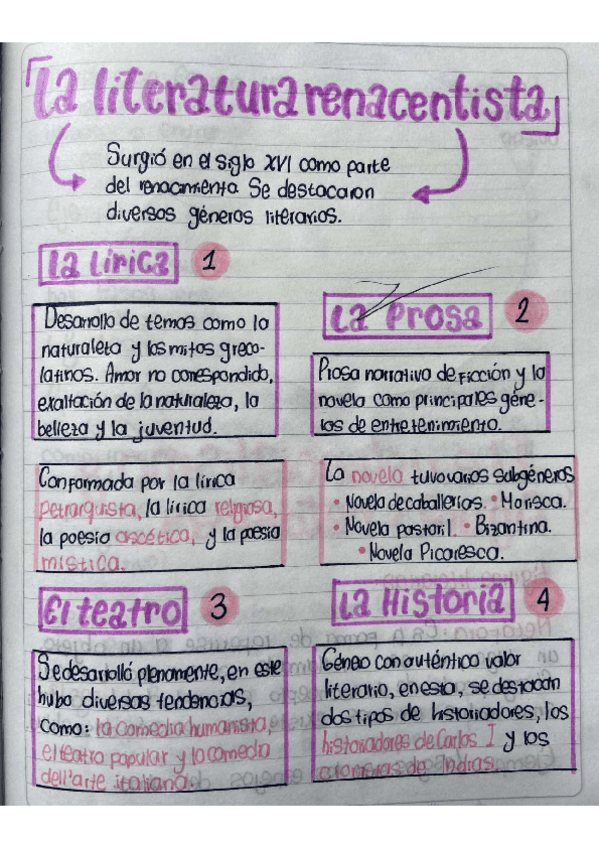 La literatura renacentista
Surgió en el siglo XVI como parte
del renacimiento. Se destacaron
diversos géneros literarios.
La Lírica 1
Desarrollo de temas como la
naturaleza y los mitos greco-
latinos. Amor no correspondido,
exaltación de la naturaleza, la
belleza y la juventud.
Conformada por la lírica
petrarquista, la lírica religiosa,
la poesía ascética, y la poesía
mística.
La Prosa 2
Prosa narrativa de ficción y la
novela como principales géne-
ros de entretenimiento.
La novela tuvo varios subgéneros
• Novela de caballerías. • Morisca.
• Novela pastoril • Bizantina.
• Novela Picaresca.
El teatro 3
Se desarrolló plenamente, en este
hubo diversas tendencias,
como: la comedia humanista,
el teatro popular y la comedia
dell'arte italiana.
La Historia 4
Géneo con auténtico valor
literario, en esta, se destacan
dos tipos de historiadores, los
historiadores de Carlos I y los
cronistas de Indias.